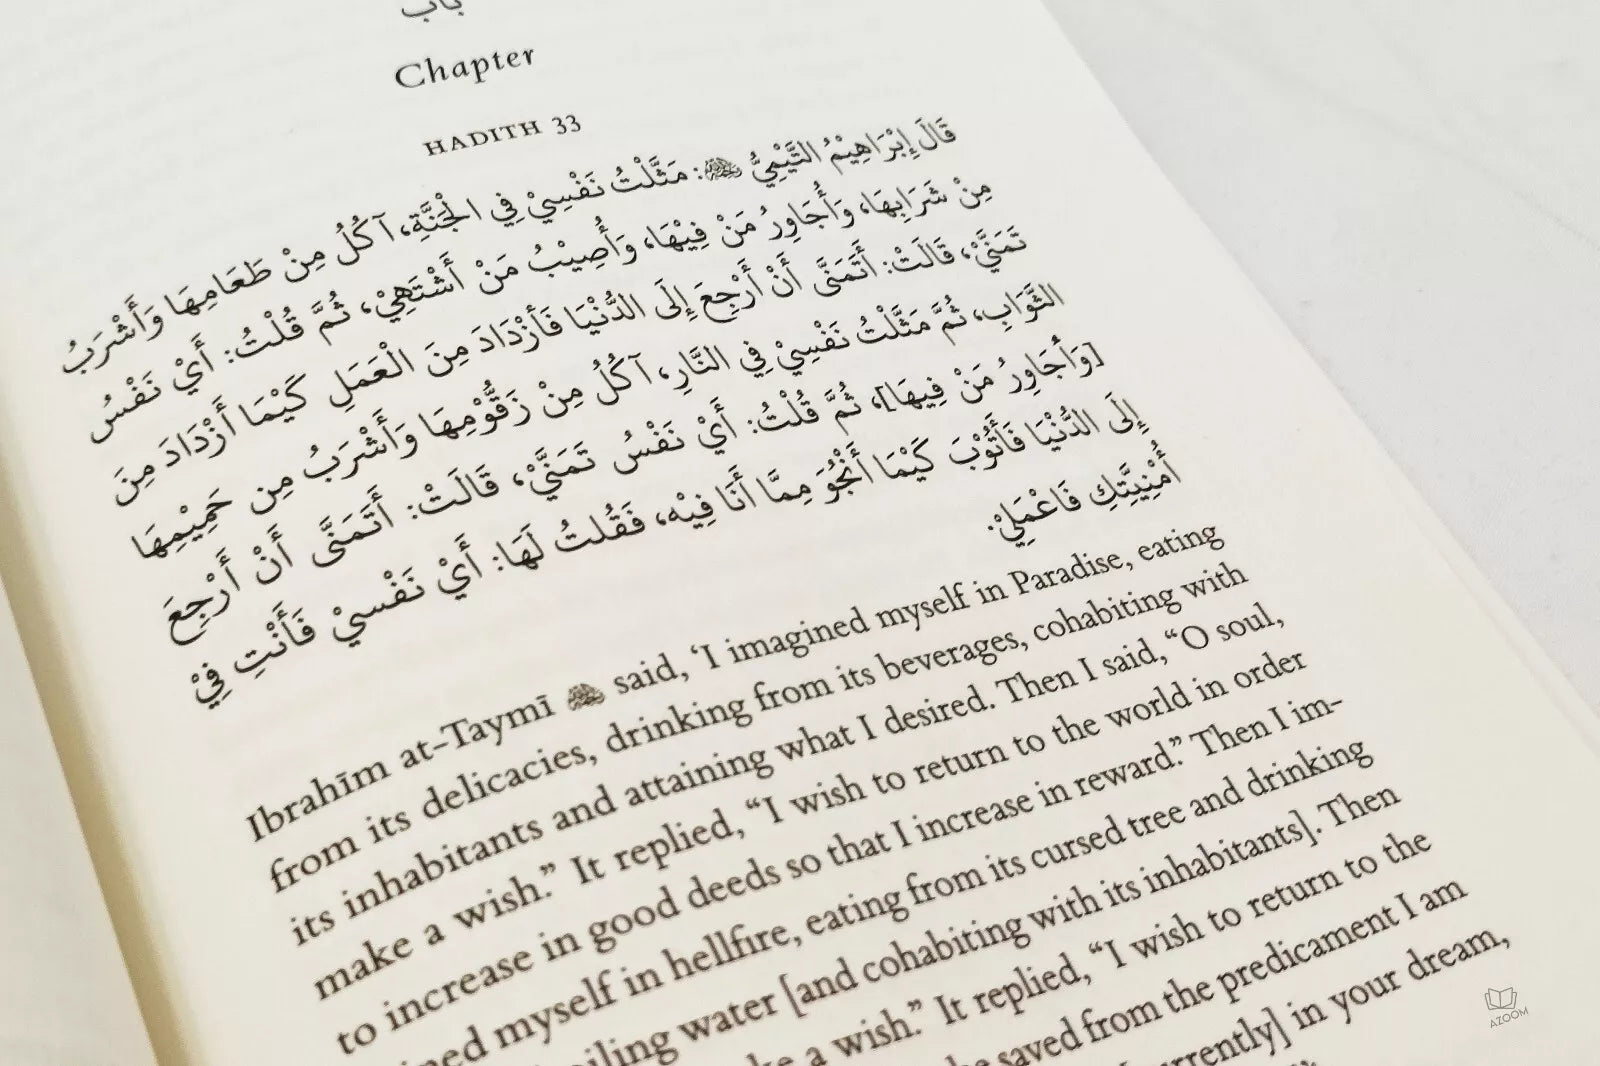 باب
Chapter
HADITH 33
قَالَ إِبْرَاهِيْمُ التَّيْمِيُّ: مَثَّلْتُ نَفْسِيْ فِي الْجَنَّةِ، آكُلُ مِنْ طَعَامِهَا وَأَشْرَبُ
مِنْ شَرَابِهَا، وَأُجَاوِرُ مَنْ فِيْهَا، وَأُصِيْبُ مَنْ أَشْتَهِيْ، ثُمَّ قُلْتُ: أَيْ نَفْسُ
تَمَنَّيْ، قَالَتْ: أَتَمَنَّى أَنْ أَرْجِعَ إِلَى الدُّنْيَا فَأَزْدَادَ مِنَ الْعَمَلِ كَيْمَا أَزْدَادَ مِنَ
الثَّوَابِ، ثُمَّ مَثَّلْتُ نَفْسِيْ فِي النَّارِ، آكُلُ مِنْ زَقُّوْمِهَا وَأَشْرَبُ مِن حَمِيْمِهَا
[وَأُجَاوِرُ مَنْ فِيهَا]، ثُمَّ قُلْتُ: أَيْ نَفْسُ تَمَنَّيْ، قَالَتْ: أَتَمَنَّى أَنْ أَرْجِعَ
إِلَى الدُّنْيَا فَأَتُوْبَ كَيْمَا أَنْجُوَ مِمَّا أَنَا فِيْه، فَقُلتُ لَهَا: أَيْ نَفْسيْ فَأَنْتِ فِيْ
أُمْنِيَتِكِ فَاعْمَلِيْ.
Ibrahīm at-Taymī said, ‘I imagined myself in Paradise, eating
from its delicacies, drinking from its beverages, cohabiting with
its inhabitants and attaining what I desired. Then I said, “O soul,
make a wish.” It replied, “I wish to return to the world in order
to increase in good deeds so that I increase in reward.” Then I im-
myself in hellfire, eating from its cursed tree and drinking
water [and cohabiting with its inhabitants]. Then
a wish.” It replied, “I wish to return to the
saved from the predicament I am
in your dream,
AZOOM